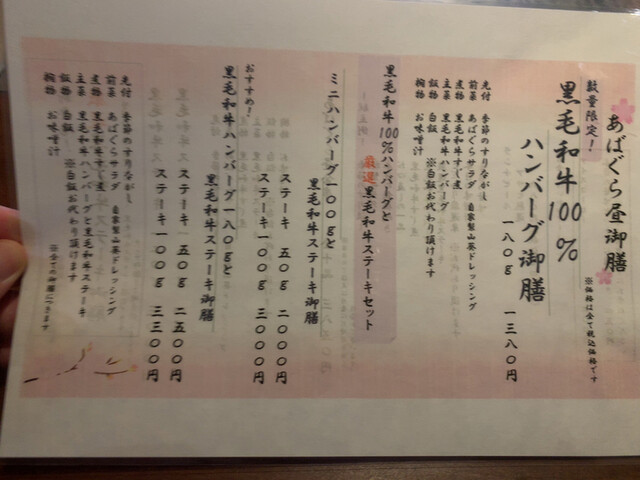 あばぐら昼御膳
※価格は全て税込価格です
数量限定!
黒毛和牛100%
ハンバーグ御膳
一八〇g 一三八〇円
先付 季節のすりながし
前菜 あばぐらサラダ 自家製山葵ドレッシング
煮物 黒毛和牛すじ煮
主菜 黒毛和牛ハンバーグ
飯物 白飯 ※白飯お代わり頂けます
椀物 お味噌汁
黒毛和牛100%ハンバーグと
厳選黒毛和牛ステーキセット
ミニハンバーグ一〇〇gと
黒毛和牛ステーキ御膳
ステーキ 五〇g 二〇〇〇円
ステーキ一〇〇g 三〇〇〇円
おすすめ!
黒毛和牛ハンバーグ一八〇gと
黒毛和牛ステーキ御膳
ステーキ 五〇g 二五〇〇円
ステーキ一〇〇g 三三〇〇円
先付 季節のすりながし
前菜 あばぐらサラダ 自家製山葵ドレッシング
煮物 黒毛和牛すじ煮
主菜 黒毛和牛ハンバーグと黒毛和牛ステーキ
飯物 白飯 ※白飯お代わり頂けます
椀物 お味噌汁
※全ての御膳につきます